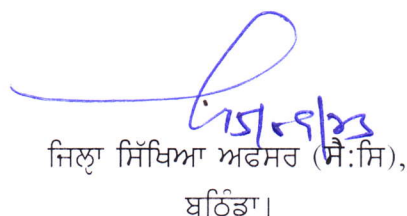 ਜਿਲ੍ਹਾ ਸਿੱਖਿਆ ਅਫਸਰ (ਸੈ:ਸਿ),
ਬਠਿੰਡਾ।